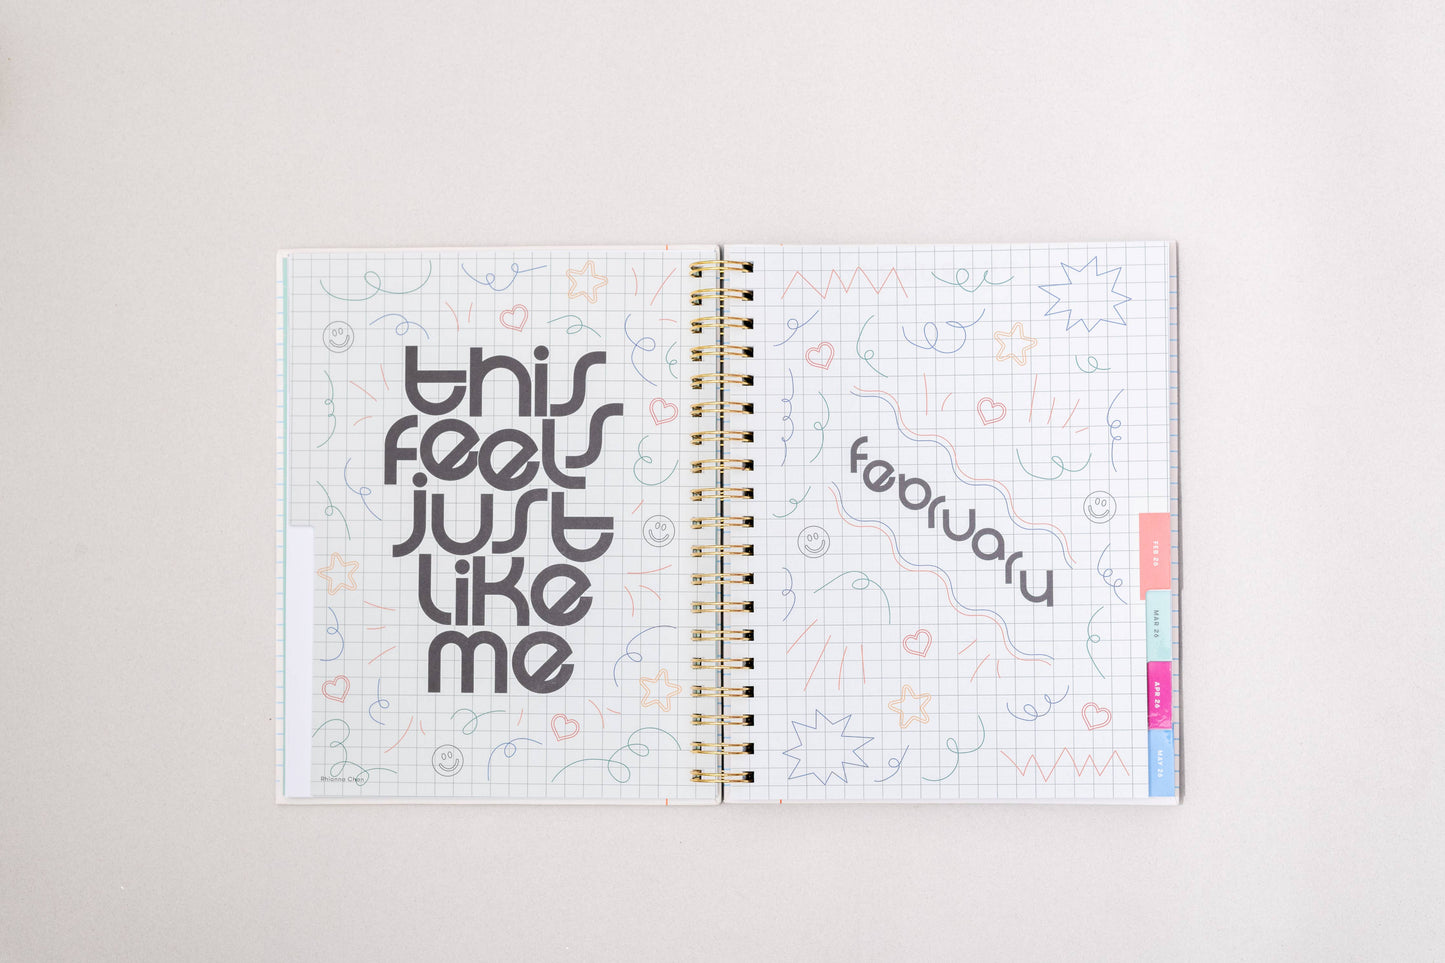 this
feels
just
like
me
Rhianna Chan
february
FEB 26
MAR 26
APR 26
MAY 26